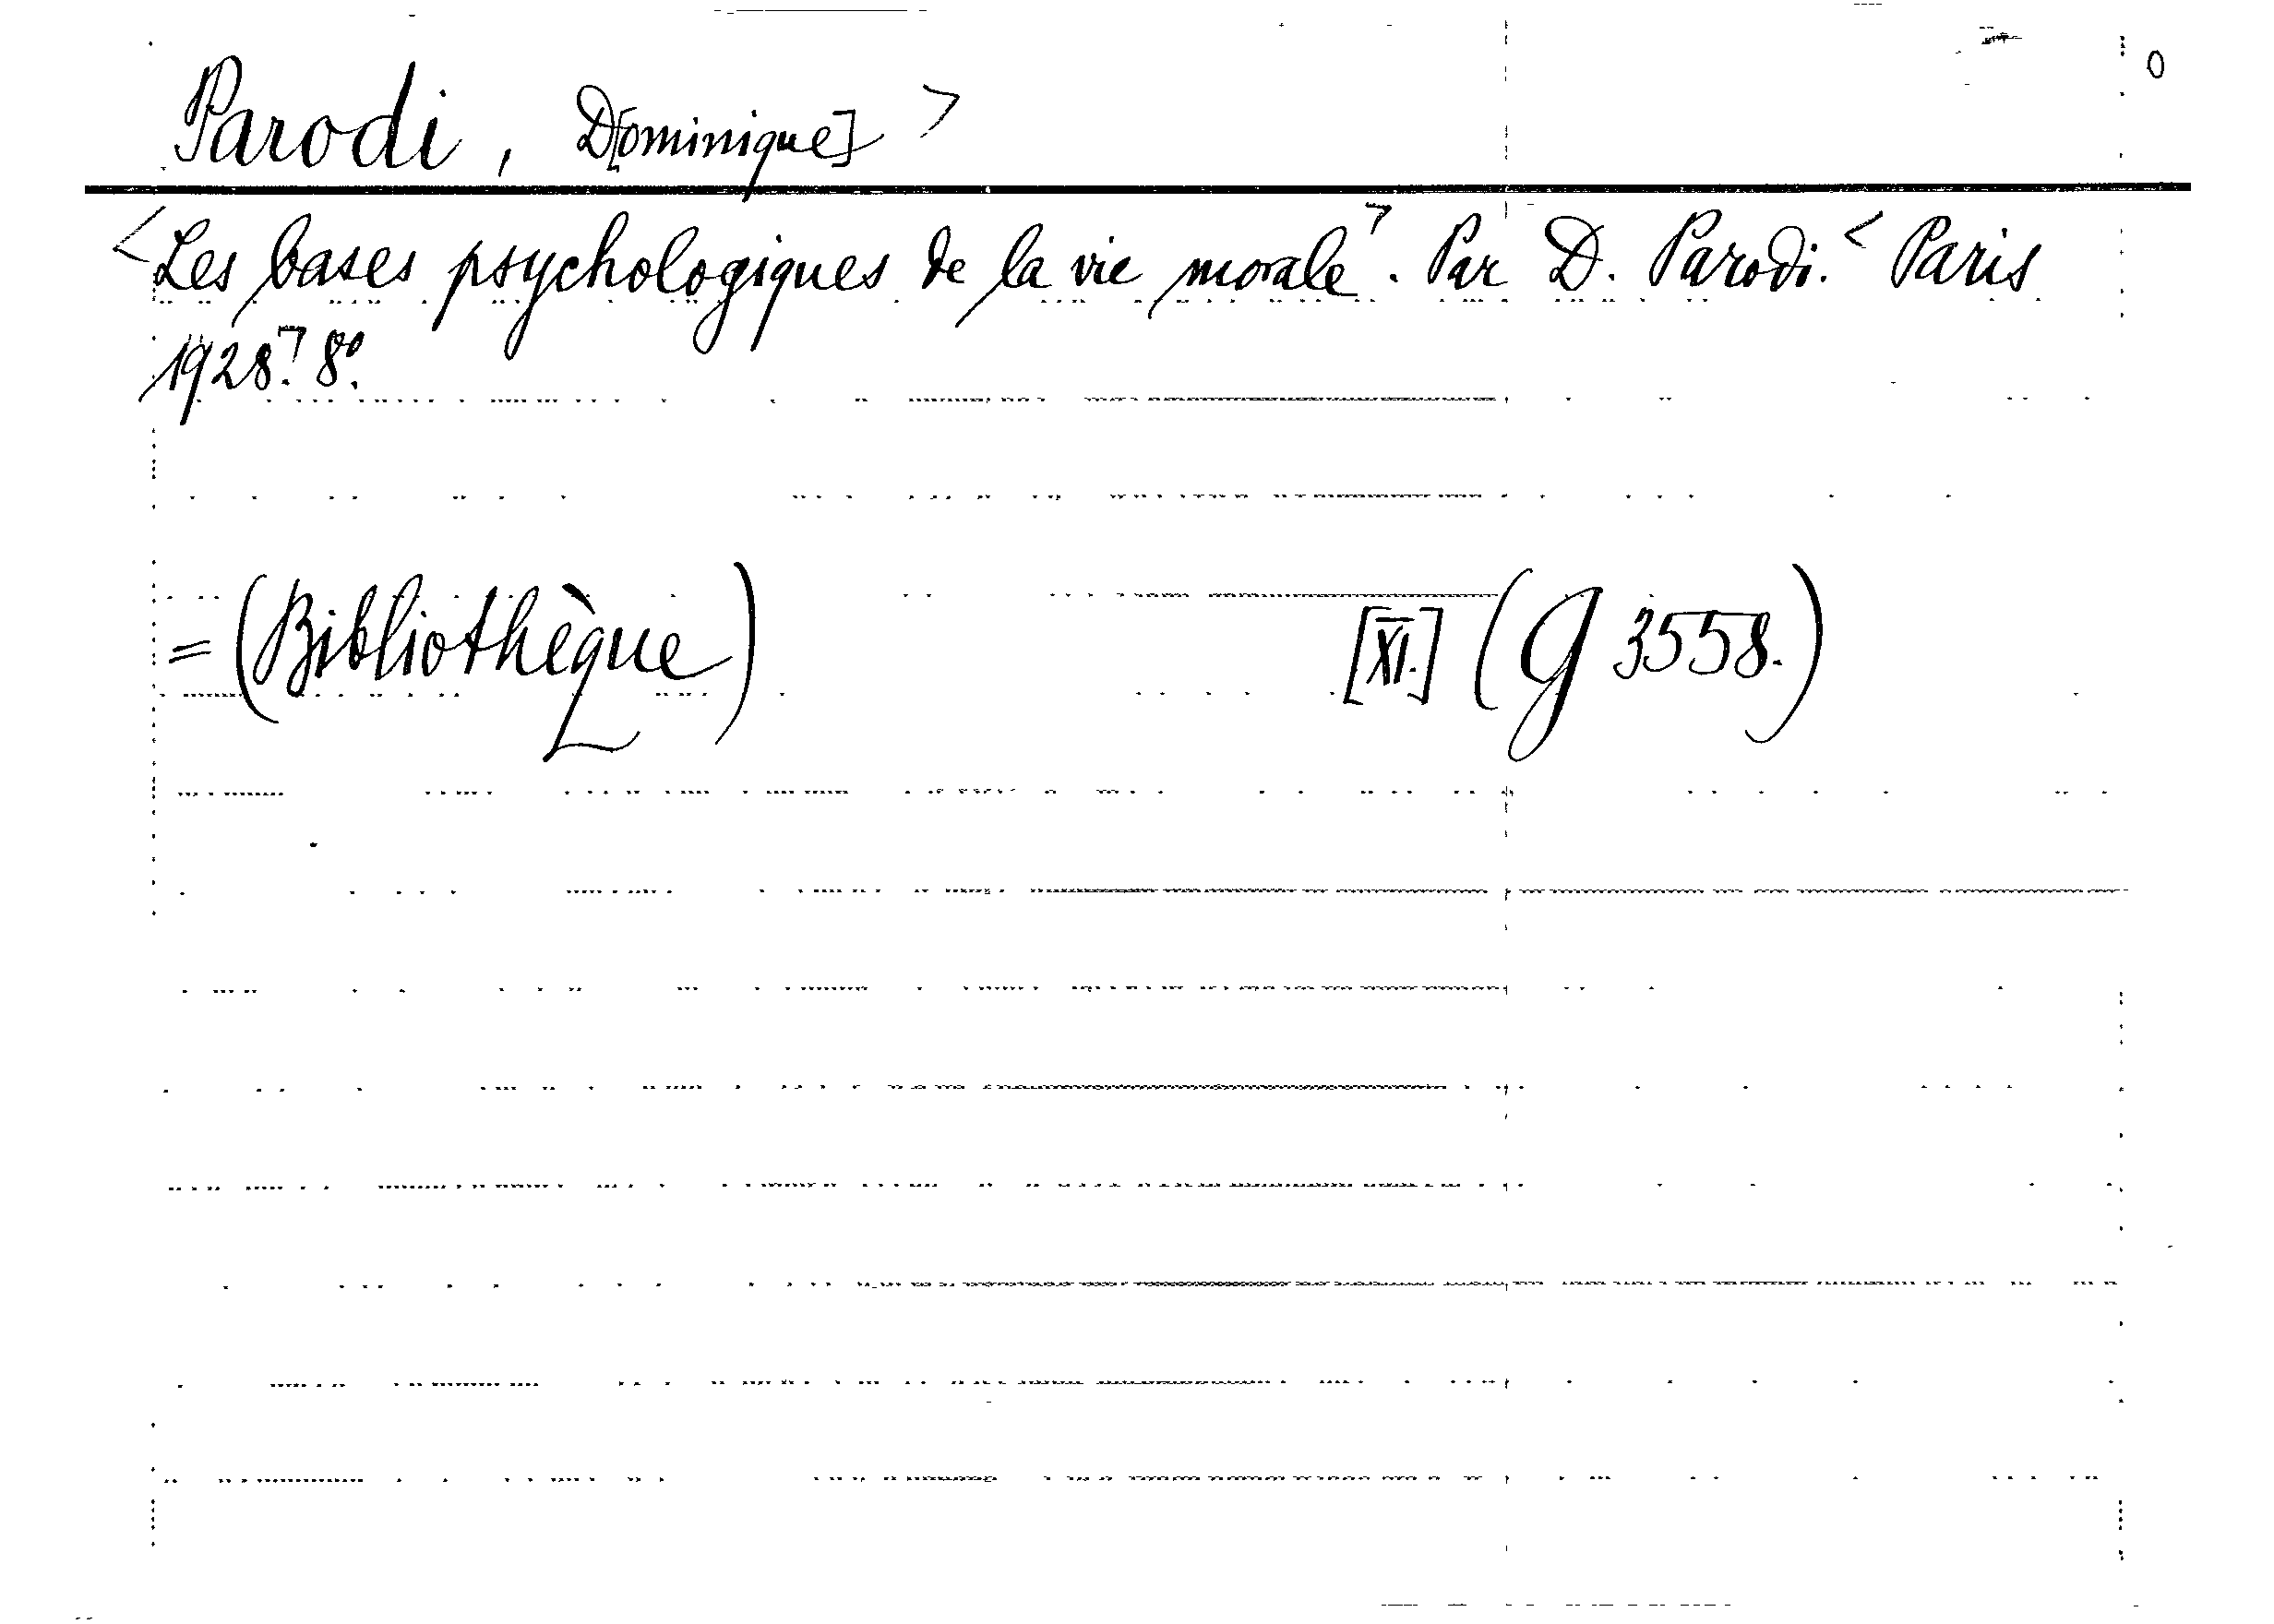 0
Parodi, D[ominique] >
<Les bases psychologiques de la vie morale>. Par D. Parodi.< Paris
1928>. 8°.
= (Bibliothèque) [XI.] (G 3558.)